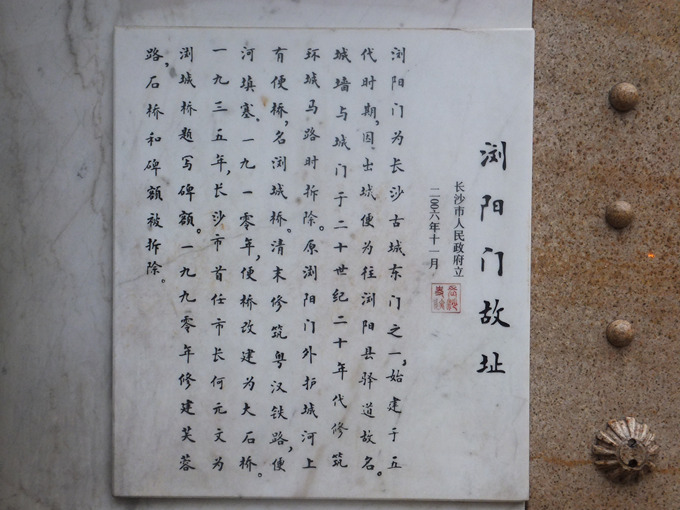 浏阳门故址
长沙市人民政府立
二〇〇六年十一月
浏阳门为长沙古城东门之一,始建于五
代时期,因出城便为往浏阳县驿道故名。
城墙与城门于二十世纪二十年代修筑
环城马路时拆除。原浏阳门外护城河上
有便桥,名浏城桥。清末修筑粤汉铁路,便
河填塞。一九一零年,便桥改建为大石桥。
一九三五年,长沙市首任市长何元文为
浏城桥题写碑额。一九九零年修建芙蓉
路,石桥和碑额被拆除。